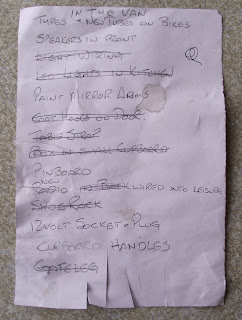 IN THE VAN
TYRES + NEW TUBES ON BIKES
SPEAKERS IN FRONT
LIGHT WIRING
LED LIGHTS IN KITCHEN
PAINT MIRROR ARMS
COAT HOOKS ON DOOR
TABLE STRAP
BOX IN SMALL CUPBOARD
PINBOARD
NEW
RADIO WIRED INTO LEISURE
SHOE RACK
12 VOLT SOCKET + PLUG
CUPBOARD HANDLES